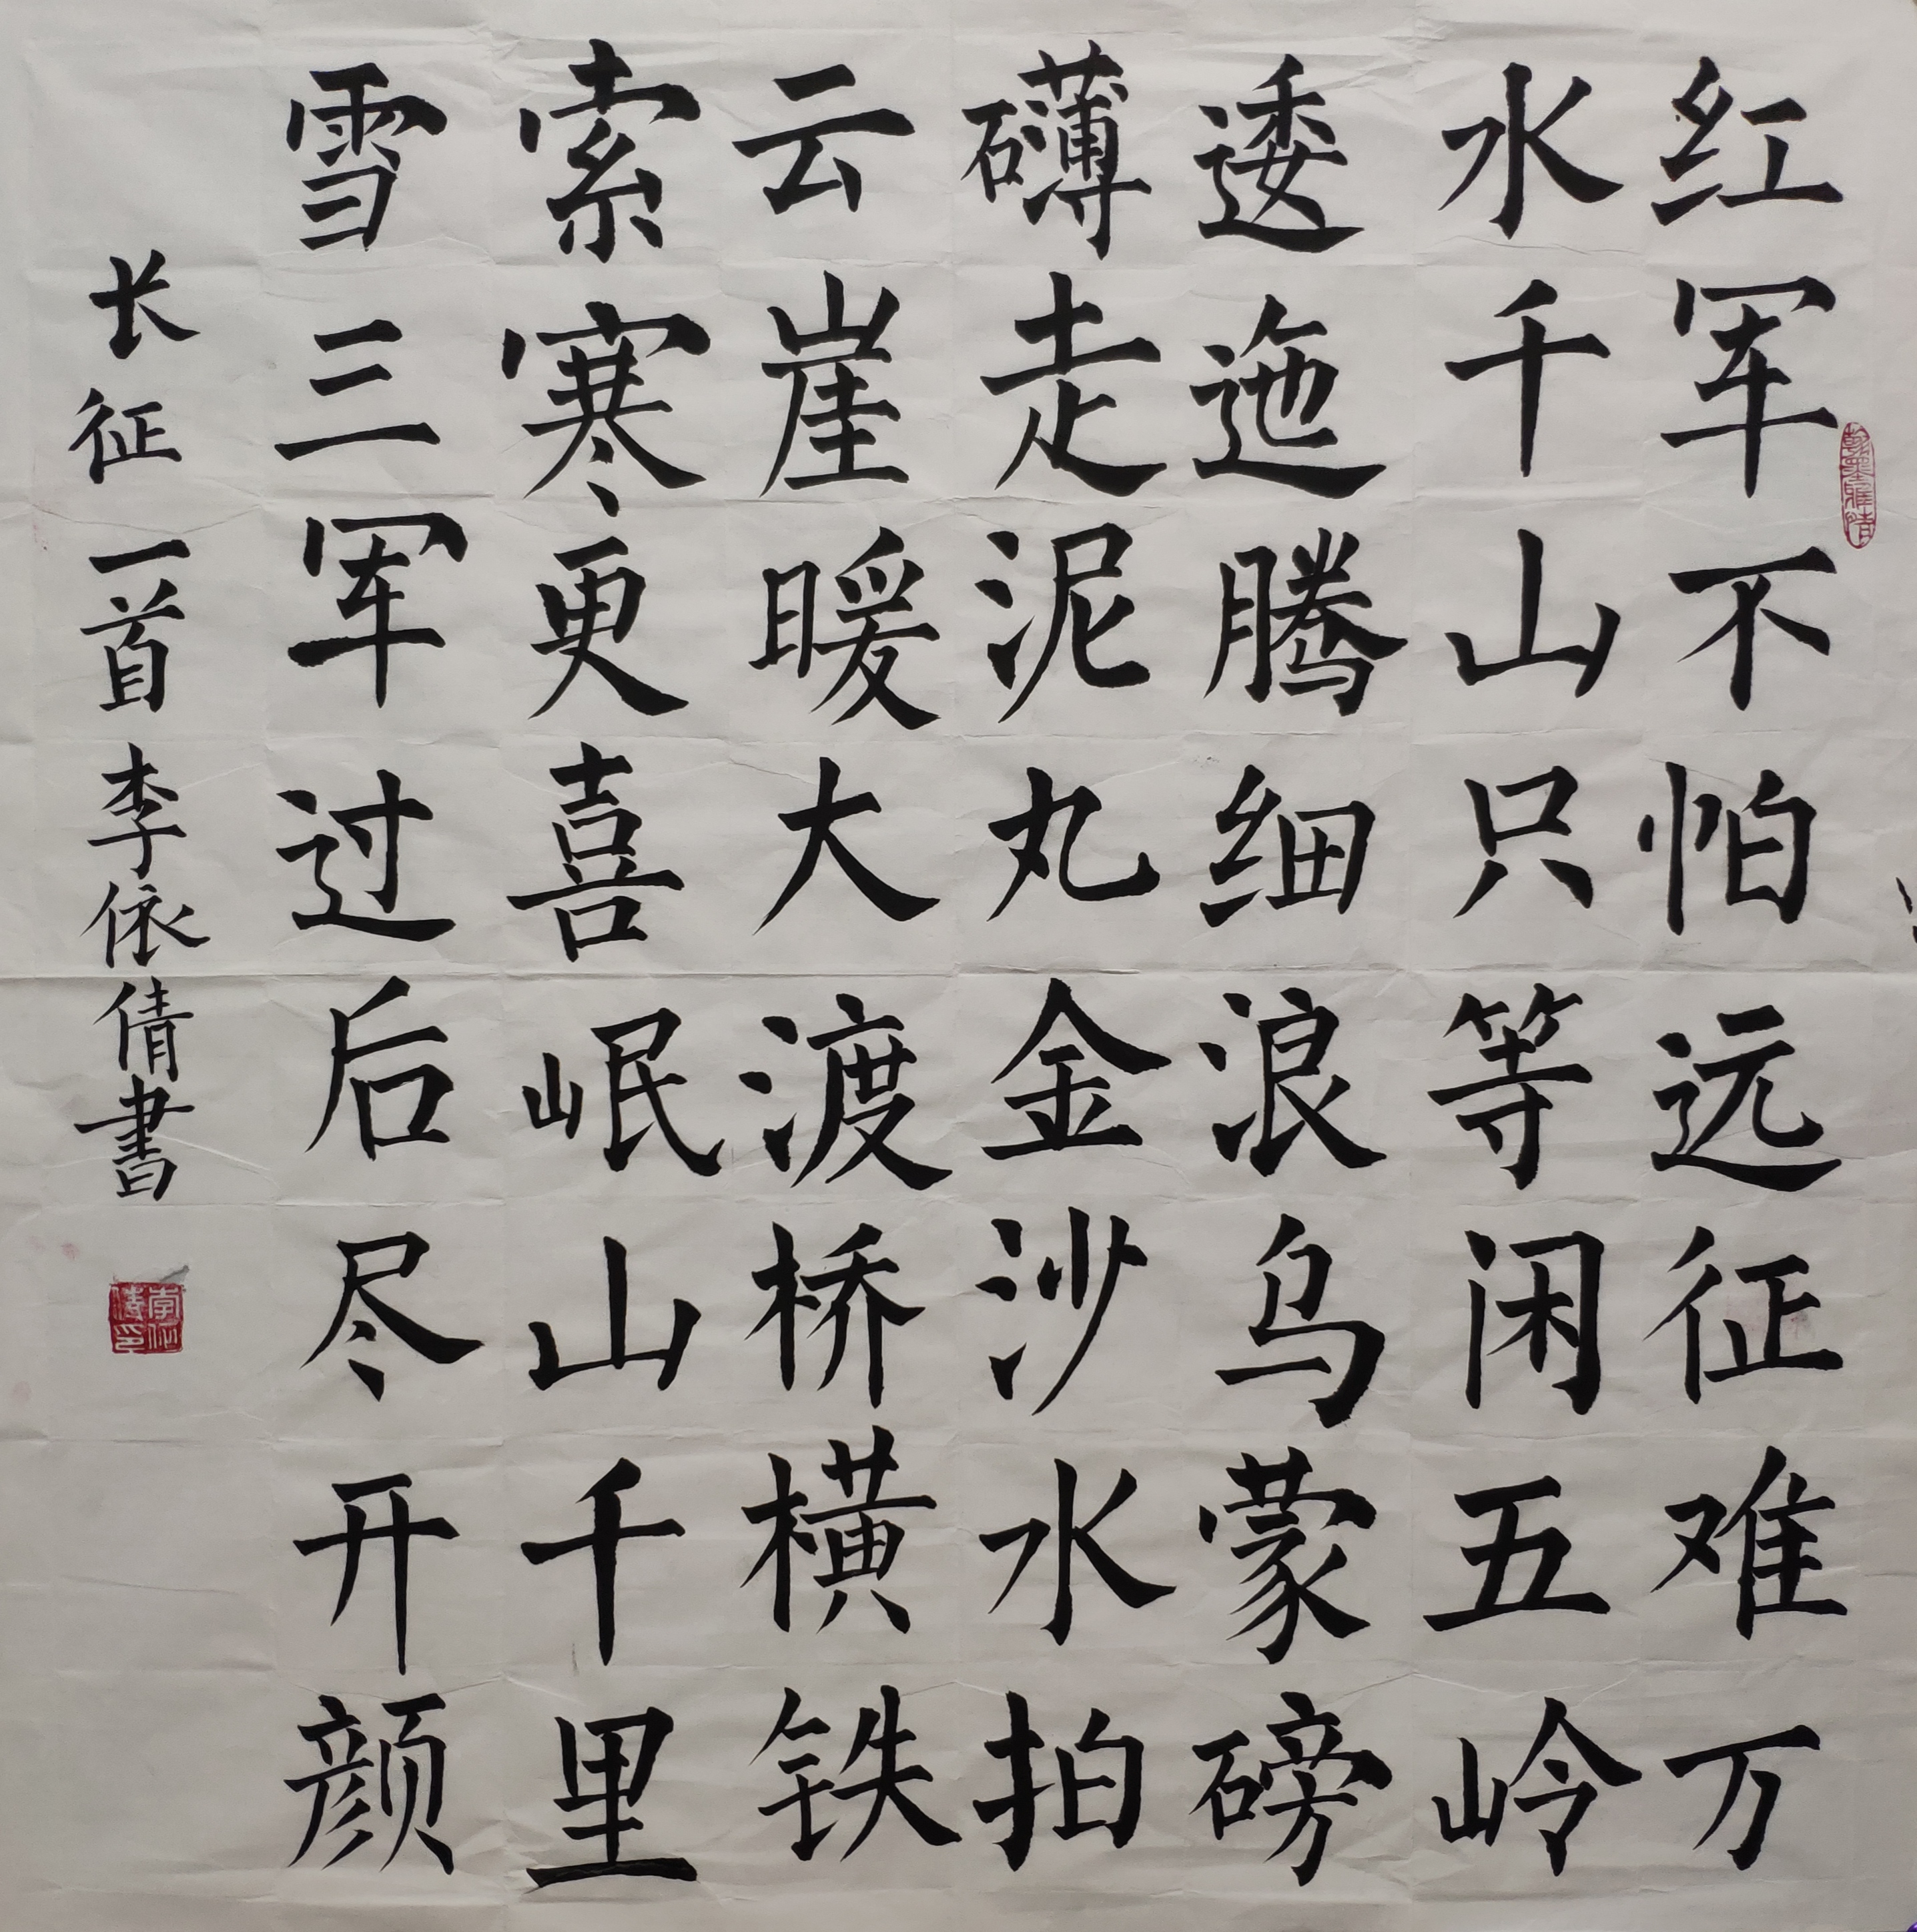 翰墨雅情
红军不怕远征难万
水千山只等闲五岭
逶迤腾细浪乌蒙磅
礴走泥丸金沙水拍
云崖暖大渡桥横铁
索寒更喜岷山千里
雪三军过后尽开颜
长征一首李依倩書
李依倩印